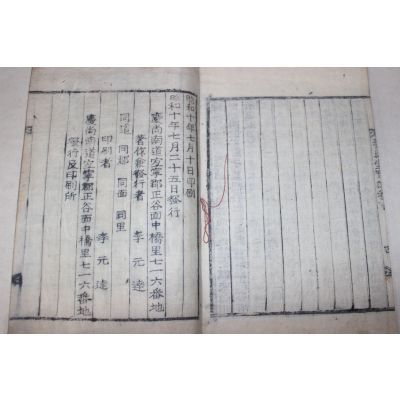 昭和十年七月十日印刷
昭和十年七月二十五日發行
慶尙南道宜寧郡正谷面中橋里七一六番地
著作兼發行者 李元逵
同道 同郡 同面 同里
印刷者 李元逵
慶尙南道宜寧郡正谷面中橋里七一六番地
發行及印刷所